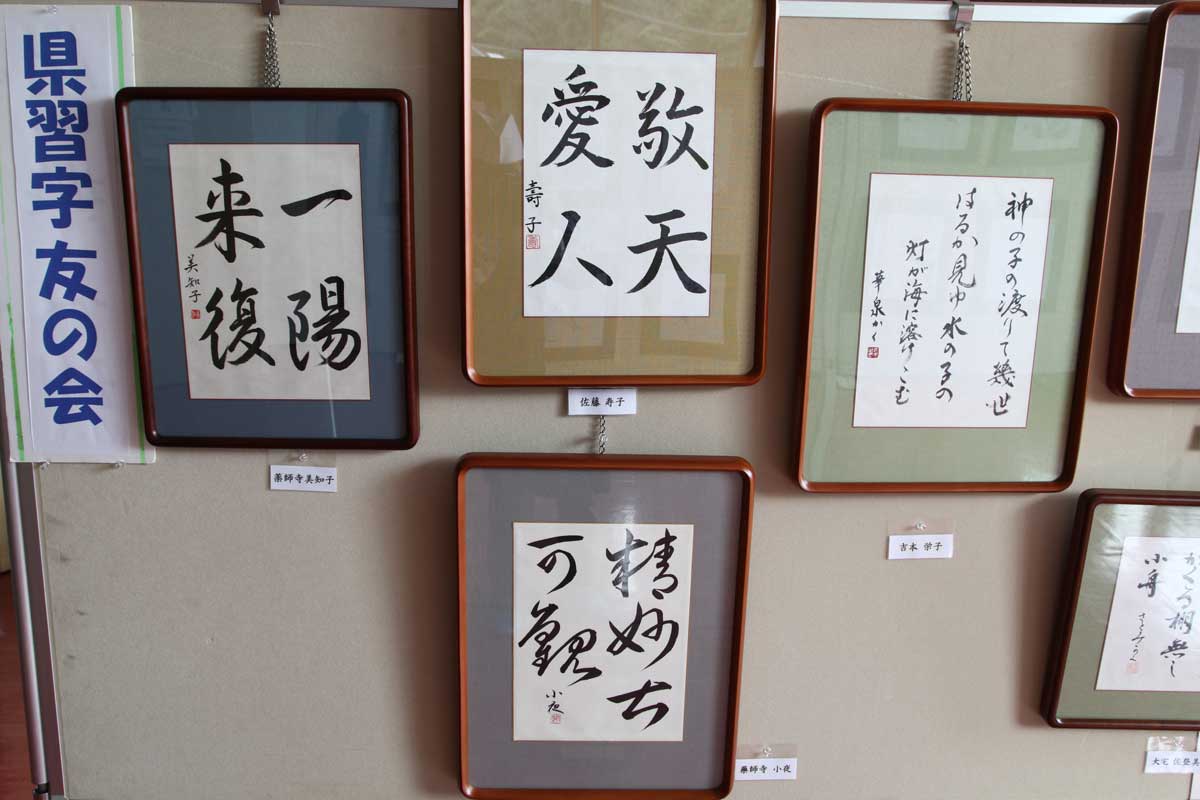 県習字友の会
一陽
来復
美知子
薬師寺美知子
敬天
愛人
壽子
佐藤 寿子
精妙
可觀
小夜
薬師寺 小夜
神の子の渡りて幾世
はるか見ゆ水の子の
灯が海に溶けこむ
華泉かく
吉本 栄子
棚無し
小舟
大宅 佐登美